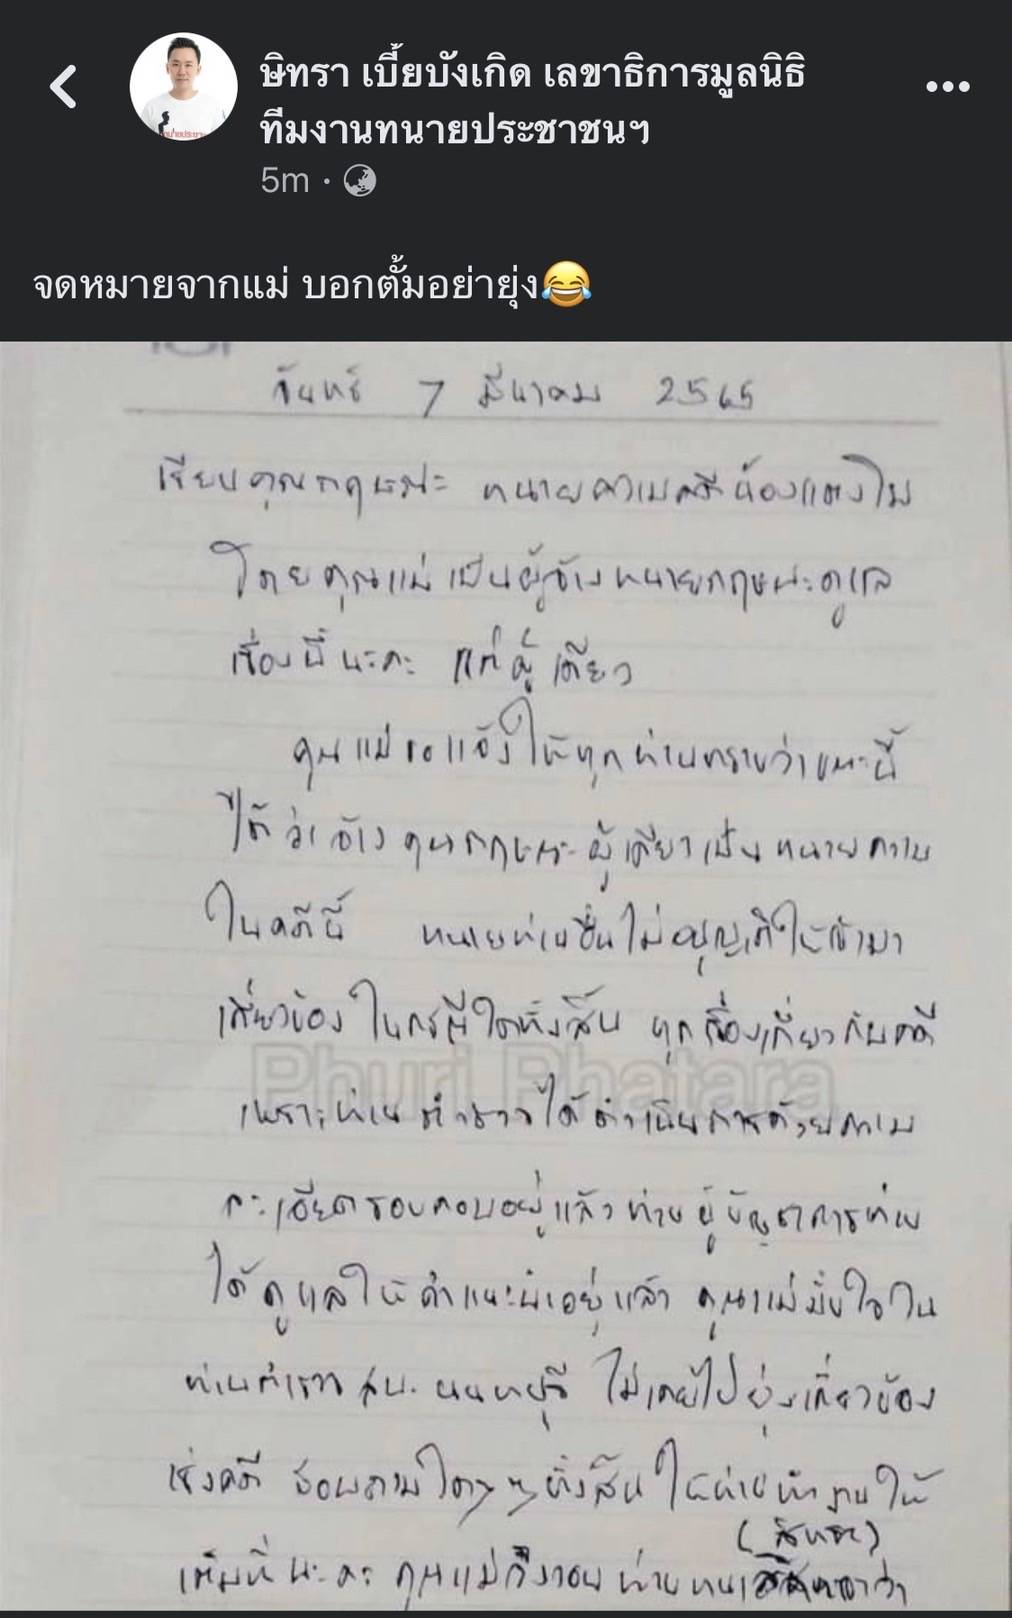 ษิทรา เบี้ยบังเกิด เลขาธิการมูลนิธิ
ทีมงานทนายประชาชนฯ
5m ·
จดหมายจากแม่ บอกตั้มอย่ายุ่ง😂
จันทร์ 7 มีนาคม 2565
เรียนคุณกฤษณะ ทนายความคดีน้องแตงโม
โดยคุณแม่เป็นผู้จ้างทนายกฤษณะดูแล
เรื่องนี้นะคะ แต่ผู้เดียว
คุณแม่ขอแจ้งให้ทุกท่านทราบว่าขณะนี้
ได้ว่าจ้างคุณกฤษณะผู้เดียวเป็นทนายความ
ในคดีนี้ ทนายท่านอื่นไม่อนุญาติให้เข้ามา
เกี่ยวข้องในกรณีใดทั้งสิ้น ทุกเรื่องเกี่ยวกับคดี
Phuri Phatara
เพราะท่านตำรวจได้ดำเนินการด้วยความ
ละเอียดรอบคอบอยู่แล้ว ท่านผู้บัญชาการท่าน
ได้ดูแลให้คำแนะนำอยู่แล้ว คุณแม่มั่นใจใน
ท่านตำรวจ สน. นนทบุรี ไม่เคยไปยุ่งเกี่ยวข้อง
เรื่องคดี สอบถามใดๆ ทั้งสิ้น ให้ท่านทำงานให้
(สิทธา)
เต็มที่นะคะ คุณแม่วิงวอน ท่านทนาย ว่า